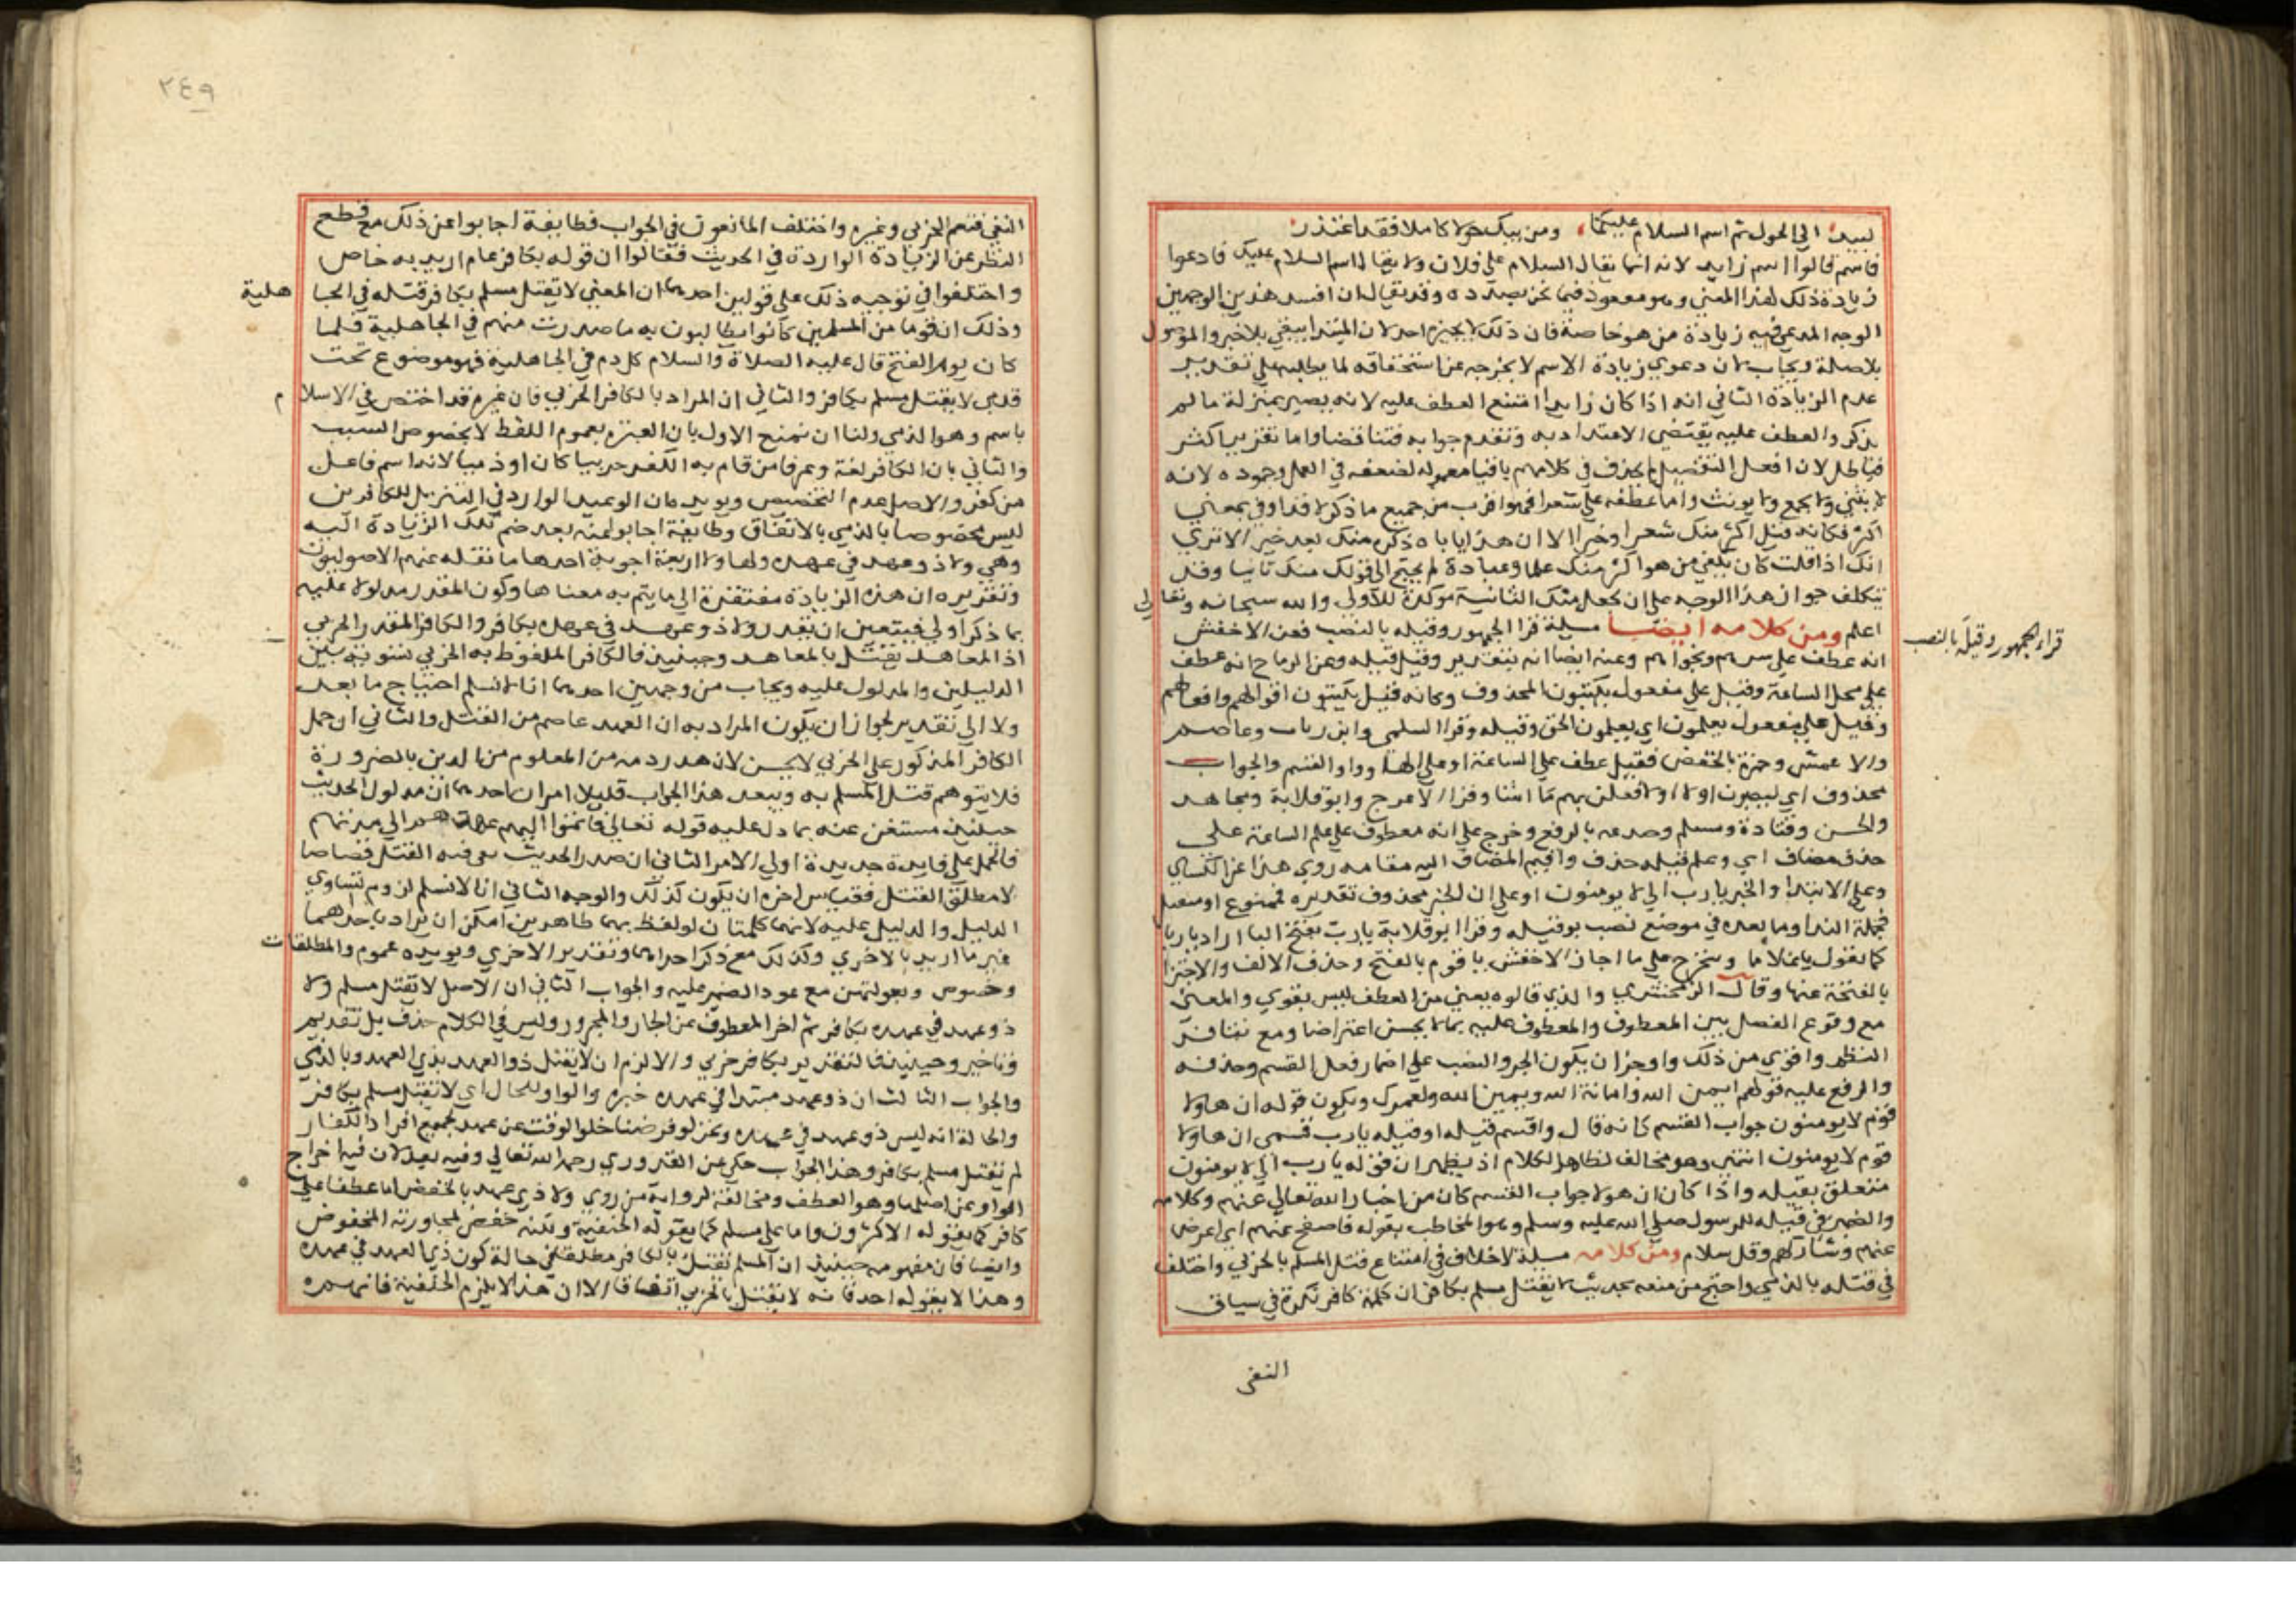 لبيد الي الحول ثم اسم السلام عليكما ومن يبك حولا كاملا فقد اعتذر
فاسم قالوا اسم زايد لانه انما يقال السلام علي فلان ولا يقال اسم السلام عليك فادعوا
زيادة ذلك لهذا المعني وهو مفقود فيما نحن بصدده وقد يقال ان افسد هذين الوجهين
الوجه المدعي فيه زيادة من هو خاصة فان ذلك لا يجيزه احد لان المبتدا يبقي بلا خبر والموصول
بلا صلة ويجاب بان دعوي زيادة الاسم لا يخرجه عن استحقاقه لما يطلبه علي تقدير
عدم الزيادة الثاني انه اذا كان زايدا امتنع العطف عليه لانه يصير بمنزلة ما لم
يذكر والعطف عليه يقتضي الاعتداد به وتقدم جوابه فتناقضا واما تقرير اكثر
فباطل لان افعل التفضيل لا يحذف في كلامهم باقيا معموله لضعفه في العمل وجموده لانه
لا يثني ولا يجمع ولا يونث واما عطفه علي شعرا فهو اقرب من جميع ما ذكر لا قد اوفي بمعني
اكثر فكانه قيل اكثر منك شعرا وخيرا الا ان هذا ياباه ذكر منك بعد خير الا تري
انك اذا قلت كان يلغي من هو اكثر منك علما وعبادة لم يحتج الي قولك منك ثانيا وقد
يتكلف جوازه هذا الوجه علي ان يجعل منك الثانية موكدة للاولي والله سبحانه وتعالي
اعلم ومن كلامه ايضا مسيلة قرا الجمهور وقيله بالنصب فعن الاخفش
قراءة الجمهور وقيلَه بالنصب
انه عطف علي سرهم ونجواهم وعنه ايضا انه بتقدير وقيل قيله وعن الزجاج انه عطف
علي محل الساعة وقيل علي مفعول يكتبون المحذوف وكانه قيل يكتبون اقوالهم وافعالهم
وقيل علي مفعول يعلمون اي يعلمون الحق وقيله وقرا السلمي وابن وثاب وعاصم
والاعمش وحمزة بالخفض فقيل عطف علي الساعة او علي انها واو القسم والجواب
محذوف اي لينصرن او لا فعلن بهم ما اشا وقرا الاعرج وابو قلابة ومجاهد
والحسن وقتادة ومسلم وصدعه بالرفع وخرج علي انه معطوف علي علم الساعة علي
حذف مضاف اي وعلم قيله حذف واقيم المضاف اليه مقامه روي هذا عن الكساي
وعلي الابتدا والخبر يا رب الي لا يومنون او علي ان الخبر محذوف تقديره مسموع او متقبل
فجملة الندا وما بعده في موضع نصب بوقيله وقرا ابو قلابة يا ربَّ بفتح البا اراد يا ربا
كما يقول يا غلاما ويتخرج علي ما اجاز الاخفش يا قوم بالفتح وحذف الالف والاجتزا
بالفتحة عنها وقال الزمخشري والذي قالوه يعني من العطف ليس بقوي والمعني
مع وقوع الفصل بين المعطوف والمعطوف عليه بما لا يحسن اعتراضا ومع تنافر
النظم واقوي من ذلك واوجز ان يكون الجر والنصب علي اضمار فعل القسم وحذفه
والرفع عليه قولهم ايمن الله وامانة الله ويمين الله ولعمرك ويكون قوله ان هاولا
قوم لا يومنون جواب القسم كانه قال واقسم قيله او قيله يا رب قسمي ان هاولا
قوم لا يومنون انتهي وهو مخالف لظاهر الكلام اذ يظهر ان قوله يا رب الي لا يومنون
متعلق بقيله واذا كان ان هولا جواب القسم كان من اخبار الله تعالي عنهم وكلامه
والضمير في قيله للرسول صلي الله عليه وسلم وهو المخاطب بقوله فاصفح عنهم اي اعرض
عنهم وشاركهم وقل سلام ومن كلامه مسيلة لا خلاف في امتناع قتل المسلم بالحربي واختلف
في قتله بالذمي واحتج من منعه بحديث لا يقتل مسلم بكافر ان كلمة كافر نكرة في سياق
النفي
٢٤٩
النفي فتعم الحربي وغيره واختلف المانعون في الجواب فطايفة اجابوا عن ذلك مع قطع
النظر عن الزيادة الواردة في الحديث فقالوا ان قوله بكافر عام اريد به خاص
واختلفوا في توجيه ذلك علي قولين احدهما ان المعني لا يقتل مسلم بكافر قتله في الجاهلية
وذلك ان قوما من المسلمين كانوا يطالبون به ما صدرت منهم في الجاهلية فلما
كان يوم الفتح قال عليه الصلاة والسلام كل دم في الجاهلية فهو موضوع تحت
قدمي لا يقتل مسلم بكافر والثاني ان المراد بالكافر الحربي فان غيره قد اختص في الاسلام
باسم وهو الذمي ولنا ان نمنع الاول بان العبرة بعموم اللفظ لا بخصوص السبب
والثاني بان الكافر لغة وعرفا من قام به الكفر حربيا كان او ذميا لانه اسم فاعل
من كفر والاصل عدم التخصيص ويويده ان الوعيد الوارد في التنزيل للكافرين
ليس مخصوصا بالذمي بالاتفاق وطايفة اجابوا عنه بعد ضم تلك الزيادة اليه
وهي ولا ذو عهد في عهده ولهاولا اربعة اجوبة احدها ما نقله عنهم الاصوليون
وتقريره ان هذه الزيادة مفتقرة الي ما يتم به معناها وكون المقدر مدلولا عليه
بما ذكر اولي فيتعين ان يقدر ولا ذو عهد في عهده بكافر والكافر المقدر الحربي
اذ المعاهد يقتل بالمعاهد وحينيذ فالكافر الملفوظ به الحربي تسوية بين
الدليلين والمدلول عليه ويجاب من وجهين احدهما انا لا نسلم احتياج ما بعد
ولا الي تقدير لجواز ان يكون المراد به ان العهد عاصم من القتل والثاني ان حمل
الكافر المذكور علي الحربي لا يحسن لان هدر دمه من المعلوم من الدين بالضرورة
فلا يتوهم قتل المسلم به ويبعد هذا الجواب قليلا امران احدهما ان مدلول الحديث
حينيذ مستغن عنه بما دل عليه قوله تعالي فاتموا اليهم عهدهم الي مدتهم
فالحمل علي فايدة جديدة اولي الامر الثاني ان صدر الحديث نفي فيه القتل قصاصا
لا مطلق القتل فقياس اخره ان يكون كذلك والوجه الثاني انا لا نسلم لزوم تساوي
الدليل والدليل عليه لانهما كلمتان لو لفظ بهما ظاهرين امكن ان يراد باحداهما
غير ما اريد بالاخري وكذلك مع ذكر احداهما وتقدير الاخري ويويده عموم والمطلقات
وخصوص وبعولتهن مع عود الضمير عليه والجواب الثاني ان الاصل لا يقتل مسلم ولا
ذو عهد في عهده بكافر ثم اخر المعطوف عن الجار والمجرور وليس في الكلام حذف بل تقديم
وتاخير وحينيذ فالتقدير بكافر حربي والا لزم ان لا يقتل ذو العهد بذي العهد وبالذمي
والجواب الثالث ان ذو عهد مبتدا في عهده خبره والواو للحال اي لا يقتل مسلم بكافر
والحالة انه ليس ذو عهد في عهده ونحن لو فرضنا خلو الوقت عن عهد لجميع افراد الكفار
لم يقتل مسلم بكافر وهذا الجواب حكي عن القدوري رحمه الله تعالي وفيه بعد لان فيه اخراج
الواو عن اصلها وهو العطف ومخالفة لرواية من روي ولا ذي عهد بالخفض اما عطفا علي
كافر كما يقوله الاكثرون واما علي مسلم كما يقوله الحنفية ولكنه خفض لمجاورته المخفوض
وايضا فان مفهومه حينيذ ان المسلم يقتل بالكافر مطلقا في حالة كون ذي العهد في عهده
وهذا لا يقوله احد فانه لا يقتل بالحربي اتفاقا الا ان هذا لا يلزم الحنفية فانهم